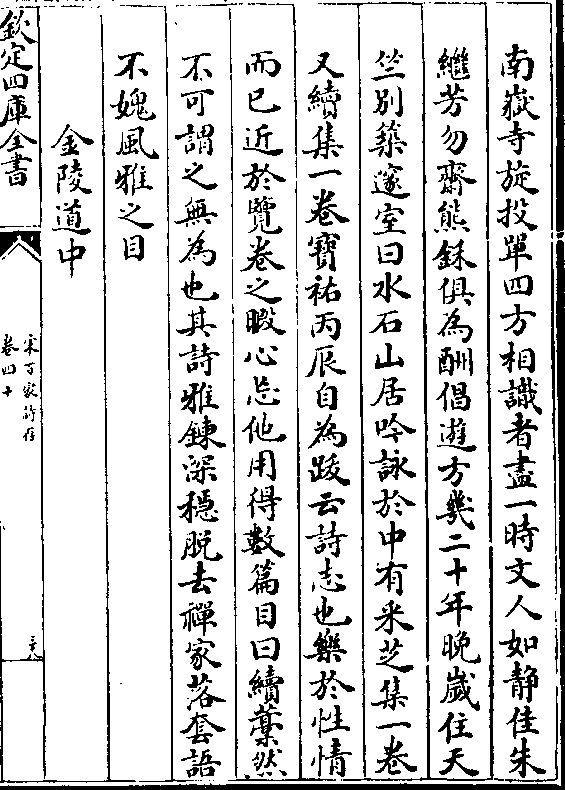 南嶽寺旋投單四方相識者盡一時文人如静佳朱
繼芳勿齋熊鉌俱為酬倡遊方幾二十年晚嵗住天
竺别築邃室曰水石山居吟詠於中有采芝集一卷
又續集一卷寳祐丙辰自為跋云詩志也樂於性情
而已近於覽卷之暇心忘他用得數篇目曰續藁然
不可謂之無為也其詩雅鍊深穏脱去禪家落套語
不媿風雅之目
金陵道中
欽定四庫全書
宋百家詩存
卷四十
三八